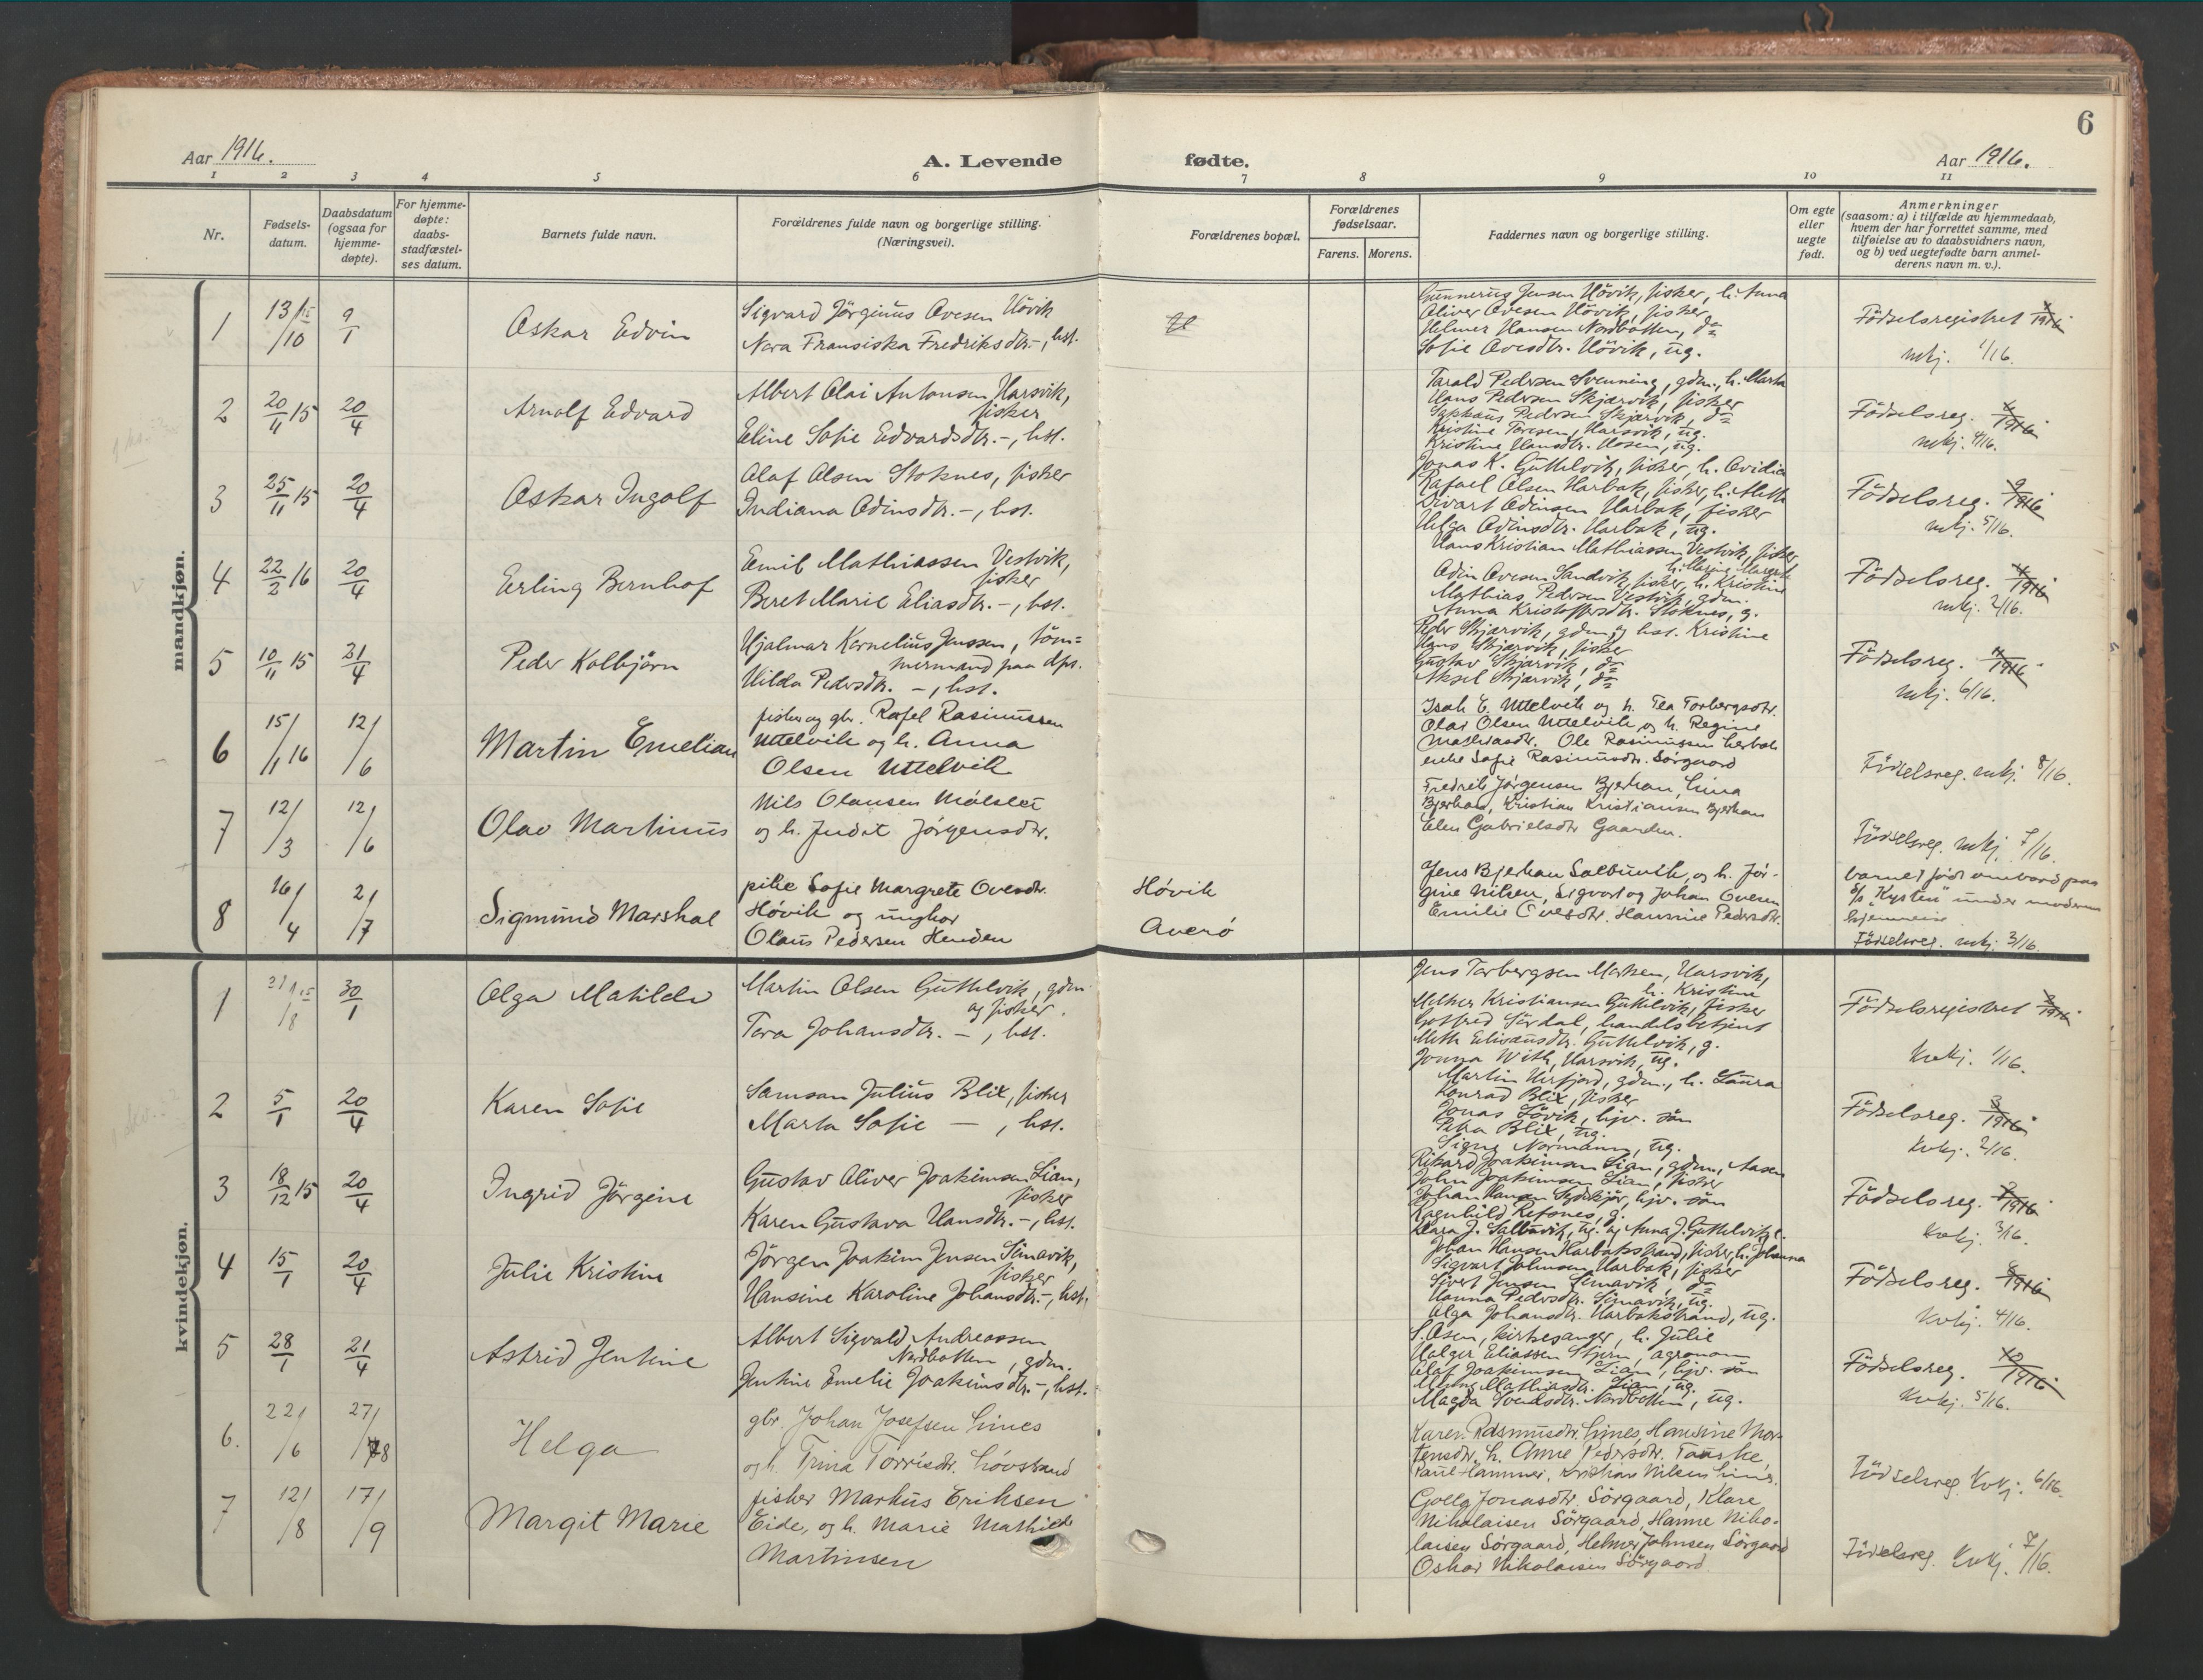 6
Aar 1916.
A. Levende
fødte.
Aar 1916.
1 2 3 4 5 6 7 8 9 10 11
Nr.
Fødsels-
datum.
Daabsdatum
(ogsaa for
hjemme-
døpte).
For hjemme-
døpte:
daabs-
stadfæstel-
ses datum.
Barnets fulde navn.
Forældrenes fulde navn og borgerlige stilling.
(Næringsvei).
Forældrenes bopæl.
Forældrenes
fødselsaar.
Farens. Morens.
Faddernes navn og borgerlige stilling.
Om egte
eller
uegte
født.
Anmerkninger
(saasom: a) i tilfælde av hjemmedaab,
hvem der har forrettet samme, med
tilføielse av to daabsvidners navn,
og b) ved uegtefødte barn anmel-
derens navn m. v.).
mandkjøn.
1
13/10 15
9/1
Oskar Edvin
Sigvard Jörginus Ovesen Hövik
Nora Fransiska Fredriksdtr. -, hst.
Gunnerus Jensen Hövik, fisker, h. Anna
Oliver Ovesen Hövik, fisker
Helmer Hansen Nordbotten, do
Sofie Ovesdtr. Hövik, ug.
Fødselsregistret 1/1916
mkj. 1/16.
2
20/11 15
20/4
Arnolf Edvard
Albert Olai Antonsen Harsvik,
fisker
Eline Sofie Edvardsdtr. -, hst.
Tarald Pedersen Svenning, gdm., h. Marta
Hans Pedersen Skjærvik, fisker
Pedersen Skjærvik, do
Kristine Toresen, Harsvik, ug.
Kristine Hansdtr. Hosen, ug.
Fødselsreg. 6/1916
mkj. 4/16.
3
25/11 15
20/4
Oskar Ingolf
Olaf Olsen Stoknes, fisker
Indiana Odinsdtr. -, hst.
Jonas K. Guttelvik, fisker, h. Ovidia
Rafael Olsen Harbak, fisker, h. Mette
Sivart Odinsen Harbak, fisker
Helga Odinsdtr. Harbak, ug.
Fødselsreg. 9/1916
mkj. 5/16.
4
22/2 16
20/4
Erling Bernhof
Emil Mathiassen Vestvik,
fisker
Beret Marie Eliasdtr. -, hst.
Hans Kristian Mathiassen Vestvik, fisker
h. Maring Margrete
Odin Ovesen Sandvik, fisker, h. Kristine
Mathias Pedersen Vestvik, gdm.
Anna Kristoffersdtr. Stoknes, g.
Fødselsreg. 4/1916
mkj. 2/16.
5
10/11 15
21/4
Peder Kolbjörn
Hjalmar Kornelius Jenssen, töm=
mermand paa dps.
Hilda Pedersdtr. -, hst.
Peder Skjærvik, gdm., og hst. Kristine
Hans Skjærvik, fisker
Gustav Skjærvik, do
Aksel Skjærvik, do
Fødselsreg. 11/1916
mkj. 6/16.
6
15/1 16
12/6
Martin Emelian
fisker og gbr. Rafel Rasmussen
Uttelvik og h. Anna
Olsen Uttelvik
Isak E. Uttelvik og h. Tea Torbergsdtr.
Olai Olsen Uttelvik, og h. Regine
Mathiasdtr. Ole Rasmussen Herbak
enke Sofie Rasmusdtr. Sørgaard
Fødselsreg. mkj. 8/16.
7
12/3
12/6
Olav Martinus
Nils Olausen Mølslet
og h. Judit Jørgensdtr.
Fredrik Jørgensen Bjerkan, Lina
Bjerkan, Kristian Kristiansen Bjerkan
Elen Gabrielsdtr Gaarden.
Fødselsreg. mkj. 7/16.
8
16/4
2/7
Sigmund Marshal
pike Sofie Margrete Ovesdtr.
Høvik og ungkar
Olaus Pedersen Henden
Høvik
Averø
Jens Bjerkan Salbuvik, og h. Jør-
gine Nilsen, Sigvart og Johan Ovesen
Emilie Ovesdtr. Hansine Pedersdtr.
barnet født ombord paa
S/S "Kysten" under moderens
hjemreise
Fødselsreg. mkj. 3/16.
kvindekjøn.
1
31/8 15
30/1
Olga Matilde
Martin Olsen Guttelvik, gdm.
og fisker.
Tora Johansdtr. -, hst.
Jens Torbergsen Marken, Harsvik,
h. Kristine
Melker Kristiansen Guttelvik, fisker
Gotfred Sördal, handelsbetjent
Meth Eliveusdtr. Guttelvik, g.
Jonna With, Harsvik, ug.
Fødselsregistret 2/1916
Kvkj. 1/16.
2
5/1
20/4
Karen Sofie
Samson Julius Blix, fisker
Marta Sofie -, hst.
Martin Hirfjord, gdm., h. Laura
Konrad Blix, fisker
Jonas Lövik, hjv. sön
Petra Blix, ug.
Signe Normann, ug.
Fødselsreg. 3/1916
Kvkj. 2/16.
3
18/12 15
20/4
Ingrid Jörgine
Gustav Oliver Joakimsen Lian,
fisker
Karen Gustava Hansdtr. -, hst.
Rikard Joakimsen Lian, gdm., Aasen
John Joakimsen Lian, fisker
Johan Hansen Sydskjör, hjv. sön
Ragnhild Refsnes, g.
Klara J. Salbuvik, ug. og Anna J. Guttelvik
Fødselsreg. 7/1916
Kvkj. 3/16.
4
15/1
20/4
Julie Kristine
Jörgen Joakim Jensen Simavik,
fisker
Hansine Karoline Johansdtr. -, hst.
Johan Hansen Harbakstrand, fisker, h. Johanna
Sigvart Johnsen Harbak, fisker
Sivert Jensen Simavik, do
Hanna Pedersdtr. Simavik, ug.
Olga Johansdtr. Harbakstrand, ug.
Fødselsreg. 8/1916
Kvkj. 4/16.
5
28/1
21/4
Astrid Jentine
Albert Sigvald Andreassen
Nordbotten, gdm.
Jentine Emelie Joakimsdtr. -, hst.
S. Osen, kirkesanger, h. Julie
Holger Eliassen Stjern, agronom
Olaf Joakimsen Lian, hjv. sön
Mathiasdtr. Lian, ug.
Magda Svendsdtr. Nordbotten, ug.
Fødselsreg. 10/1916
Kvkj. 5/16.
6.
22/6
27/8
Helga
gbr. Johan Josefsen Lines
og h. Trina Torrisdtr. Løvstrand
Karen Rasmusdtr. Lines, Hansine Mor-
tensdtr. h. Anne Pedersdtr. Taaske,
Paul Hammer, Kristian Nilsen Lines.
Fødselsreg. Kvkj. 6/16.
7
12/8
17/9
Margit Marie
fisker Markus Eriksen
Eide, og h. Marie Mathilde
Martinsen
Golla Jonasdtr. Sörgaard, Klare
Nikolaisen Sörgaard, Hanne Niko-
laisen Sörgaard, Helmer Johnsen Sörgaard
Oskar Nikolaisen Sörgaard.
Fødselsreg. Kvkj. 7/16.